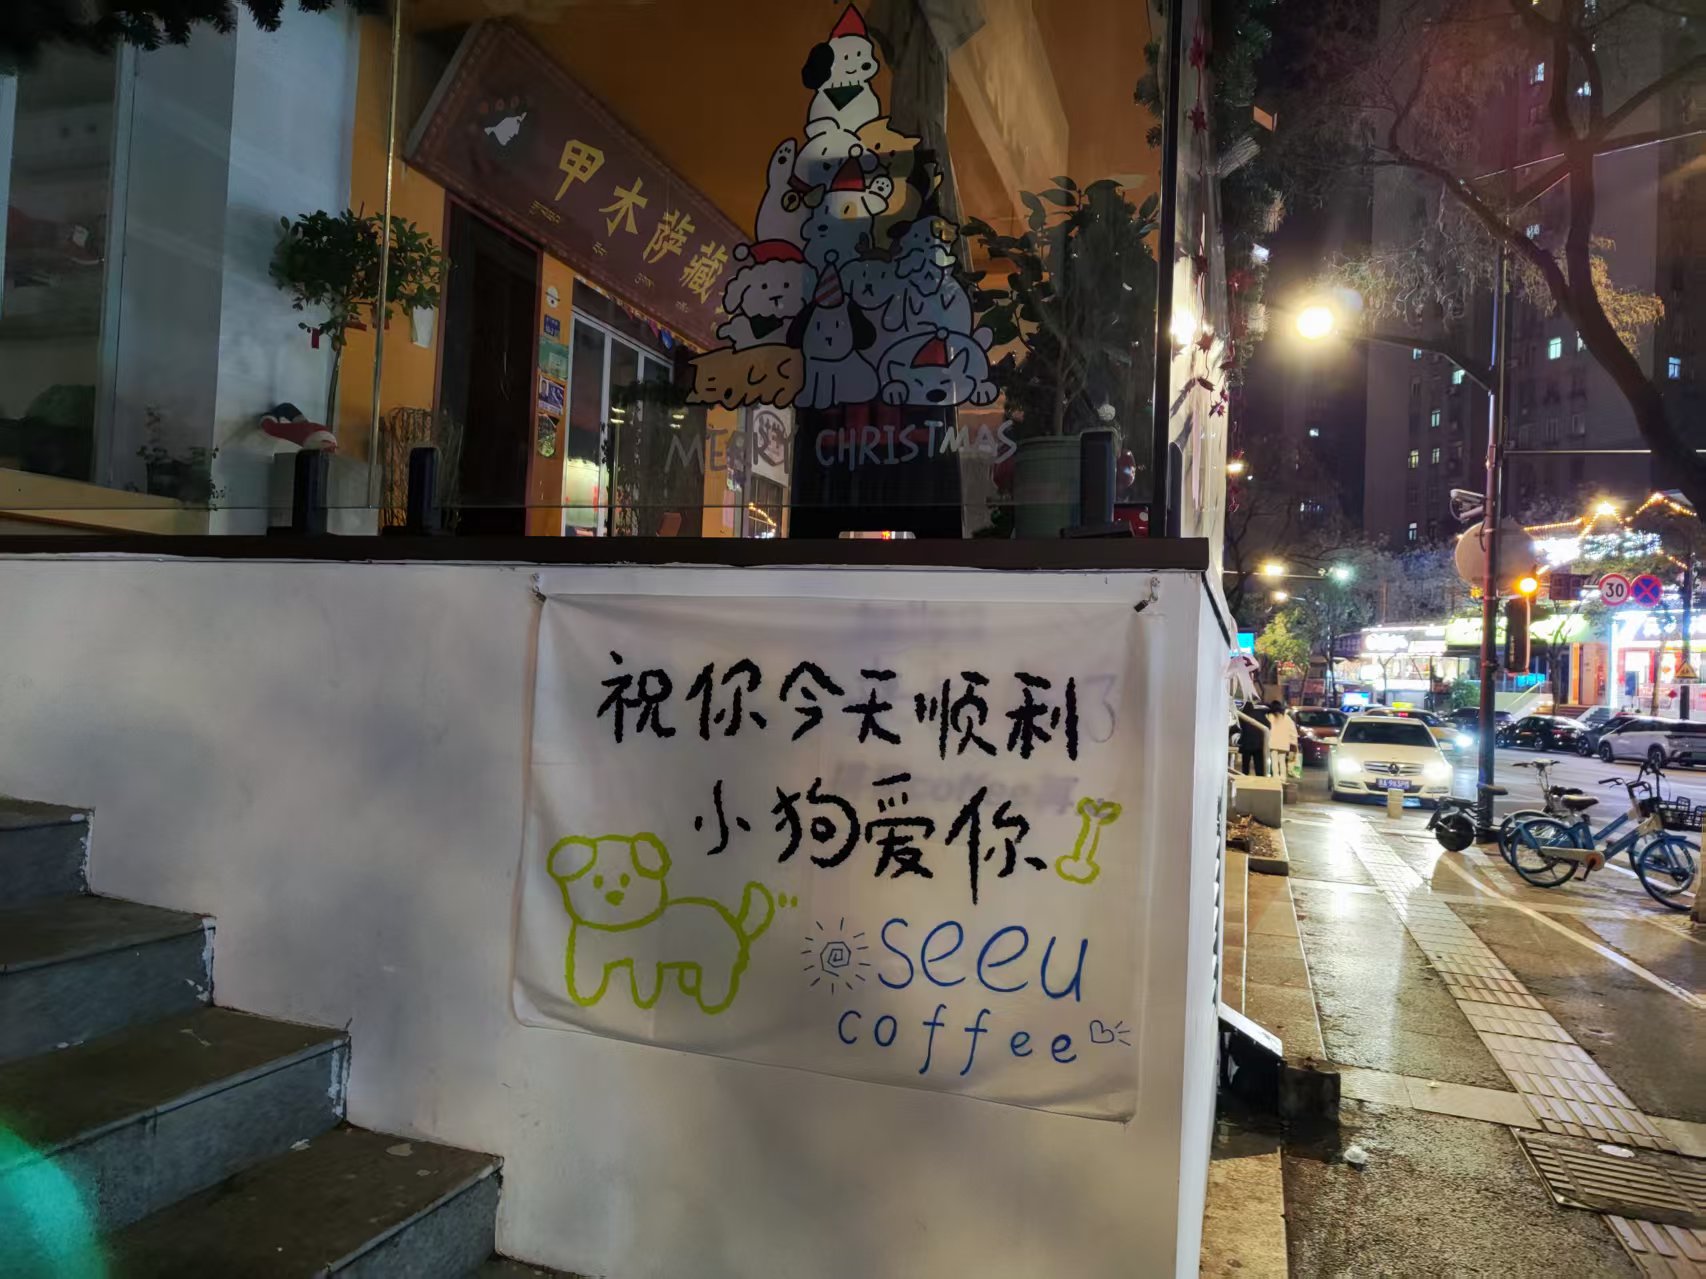 甲木萨藏
MERRY CHRISTMAS
祝你今天顺利
小狗爱你
seeu
coffee
30